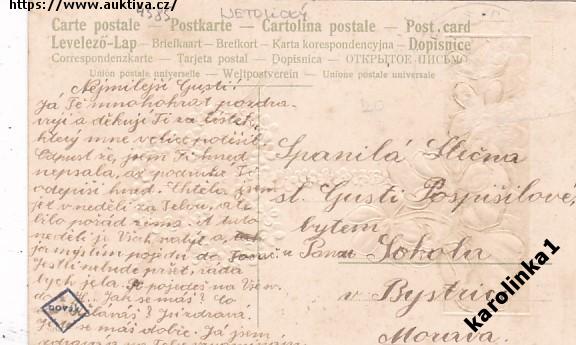 https://www.auktiva.cz/
4585
NETOLICKÝ
Carte postale - Postkarte - Cartolina postale - Post. card
Levelező-Lap - Briefkaart - Brefkort - Karta korespondencyjna - Dopisnice
Correspondenzkarte - Tarjeta postal - Dopisnica - ОТКРЫТОЕ ПИСЬМО
Union postale universelle - Weltpostverein - Unione postale universale
Nejmilejší Gusti!
Já Tě mnohokrát pozdra-
vuji a děkuji Ti za lístek,
který mne velice potěšil.
Odpusť že, jsem Ti hned
nepsala, až podruhé Ti
odepíši hned. Chtěla jsem
jet v neděli za Tebou, ale
bylo pořád zima. A tuto
neděli je
já myslím pojedu do
Jestli nebude pršet, ráda
bych jela.
Jak se máš? Co
děláváš? Jsi zdravá.
se máš dobře. Já jsem
zdráva a na Tebe vzpomínám
Spanilá Slečna
sl. Gusti Pospíšilove,
bytem
u Pana Sokola
v Bystřici
Morava.
karolinka1